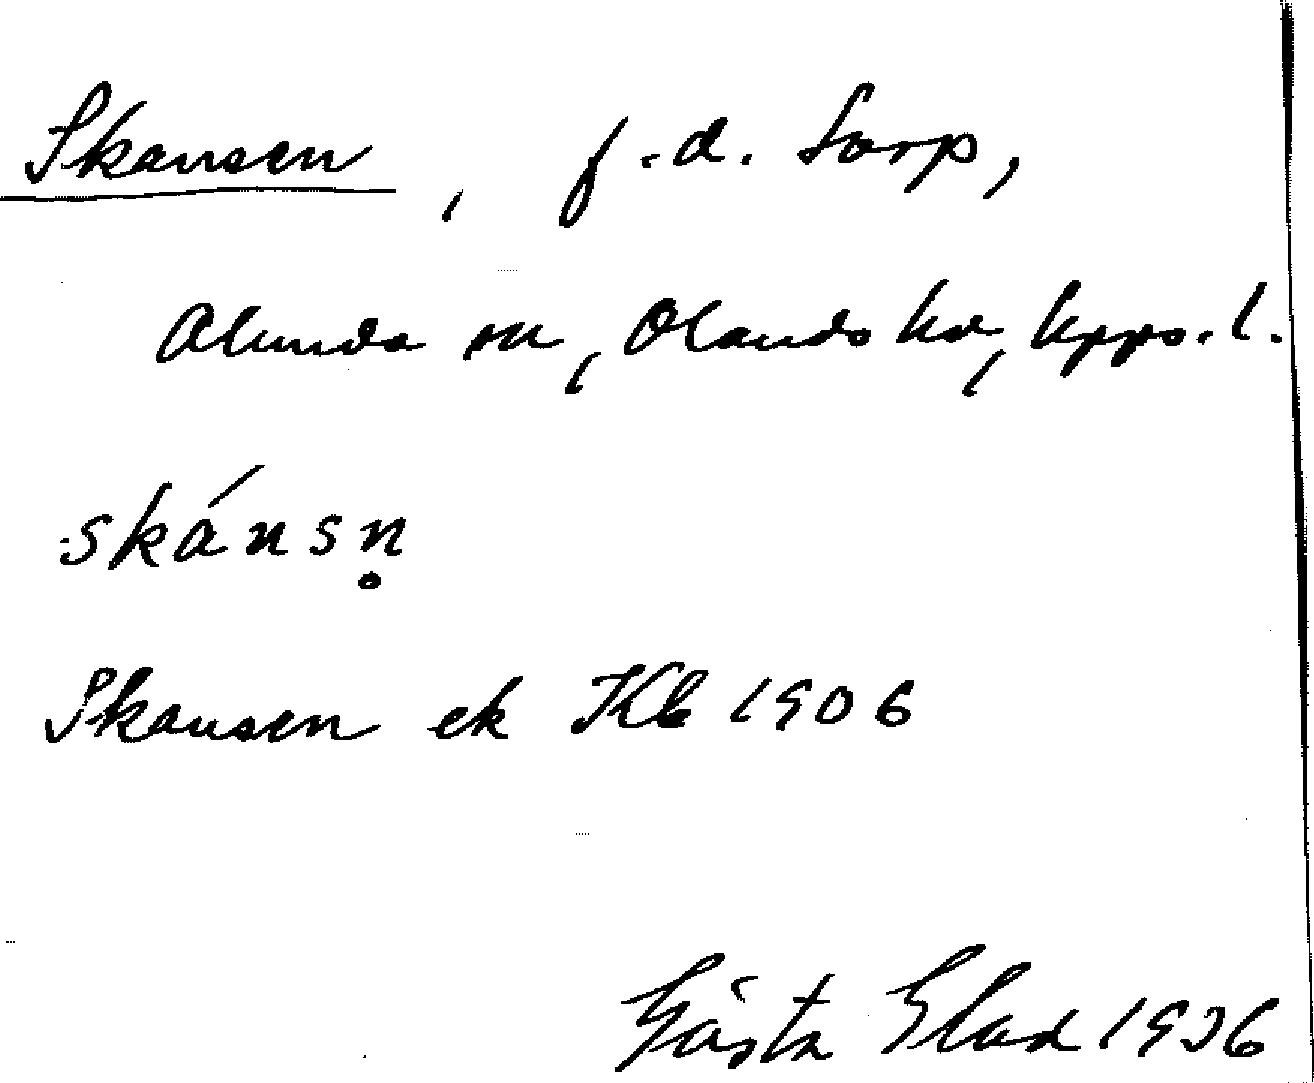 Skansen, f.d. torp,
Alunda sn, Olands hd, Upps. l.
skánsn̥
Skansen ek Kb 1906
Gösta Elad 1936